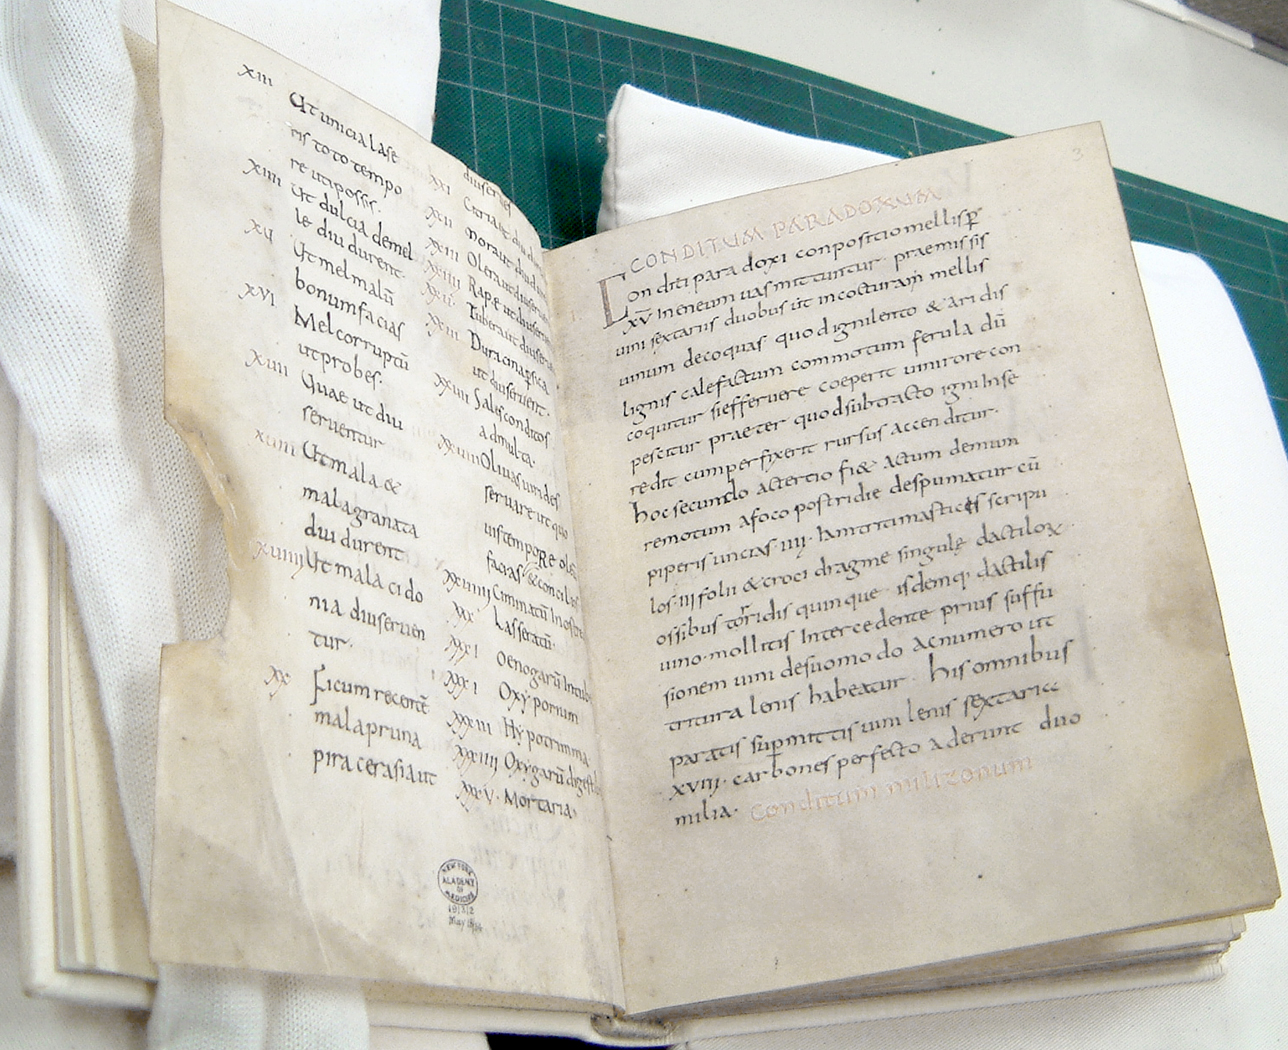 xiii Ut uncia lase
ris toto tempo
re uti possis.
xiiii Ut dulcia demel
le diu durent.
xv Ut mel malū
bonum facias
xvi Mel corruptū
ut probes.
xvii Uvae ut diu
serventur
xviii Ut mala &
mala granata
diu durent
xviiii Ut mala cido
nia diu serven
tur.
xx Ficum recentē
mala pruna
pira cerasia ut
diu serves
xxi Citria ut diu
xxii Mora ut diu
xxiii Olera ut diu serventur
xxiiii Rapę ut diu serventur
xxv Tubera ut diu serventur
xxvi Duracina persica
ut diu servent.
xxvii Sales conditos
ad multa.
xxviii Olivas virides
servare ut quo
vis tempore oleū
facias
xxviiii Cuminatū in ostrea
xxx Lasseratū.
xxxi Oenogarū in tubera
xxxii Oxyporum
xxxiii Hypotrimma
xxxiiii Oxygarū digestibilem
xxxv. Mortaria.
3
CONDITUM PARADOXUM
Conditi paradoxi conpositio mellis p̄
xv in eneum vas mittuntur praemissis
vini sextariis duobus ut in cocturam mellis
vinum decoquas quod igni lento & aridis
lignis calefactum commotum ferula dū
coquitur si effervere coeperit vini rore con
pescitur praeter quod subtracto igni in se
redit cum perfrixerit rursus accenditur.
hoc secundo ac tertio fi& ac tum demum
remotum a foco postridie despumatur cū
piperis uncias iiii. hamtritimasticęs scripu
los iii folii & croci dragme singulę dactilox
ossibus torridis quinque isdemq; dactilis
vino mollitis intercedente prius suffu
sionem vini de suo modo ac numero ut
tritura lenis habeatur. his omnibus
paratis sup mittis vini lenis sextarios
xviii. carbones perfecto aderunt duo
milia. Conditum milizonum
NEW YORK
ACADEMY
OF
MEDICINE